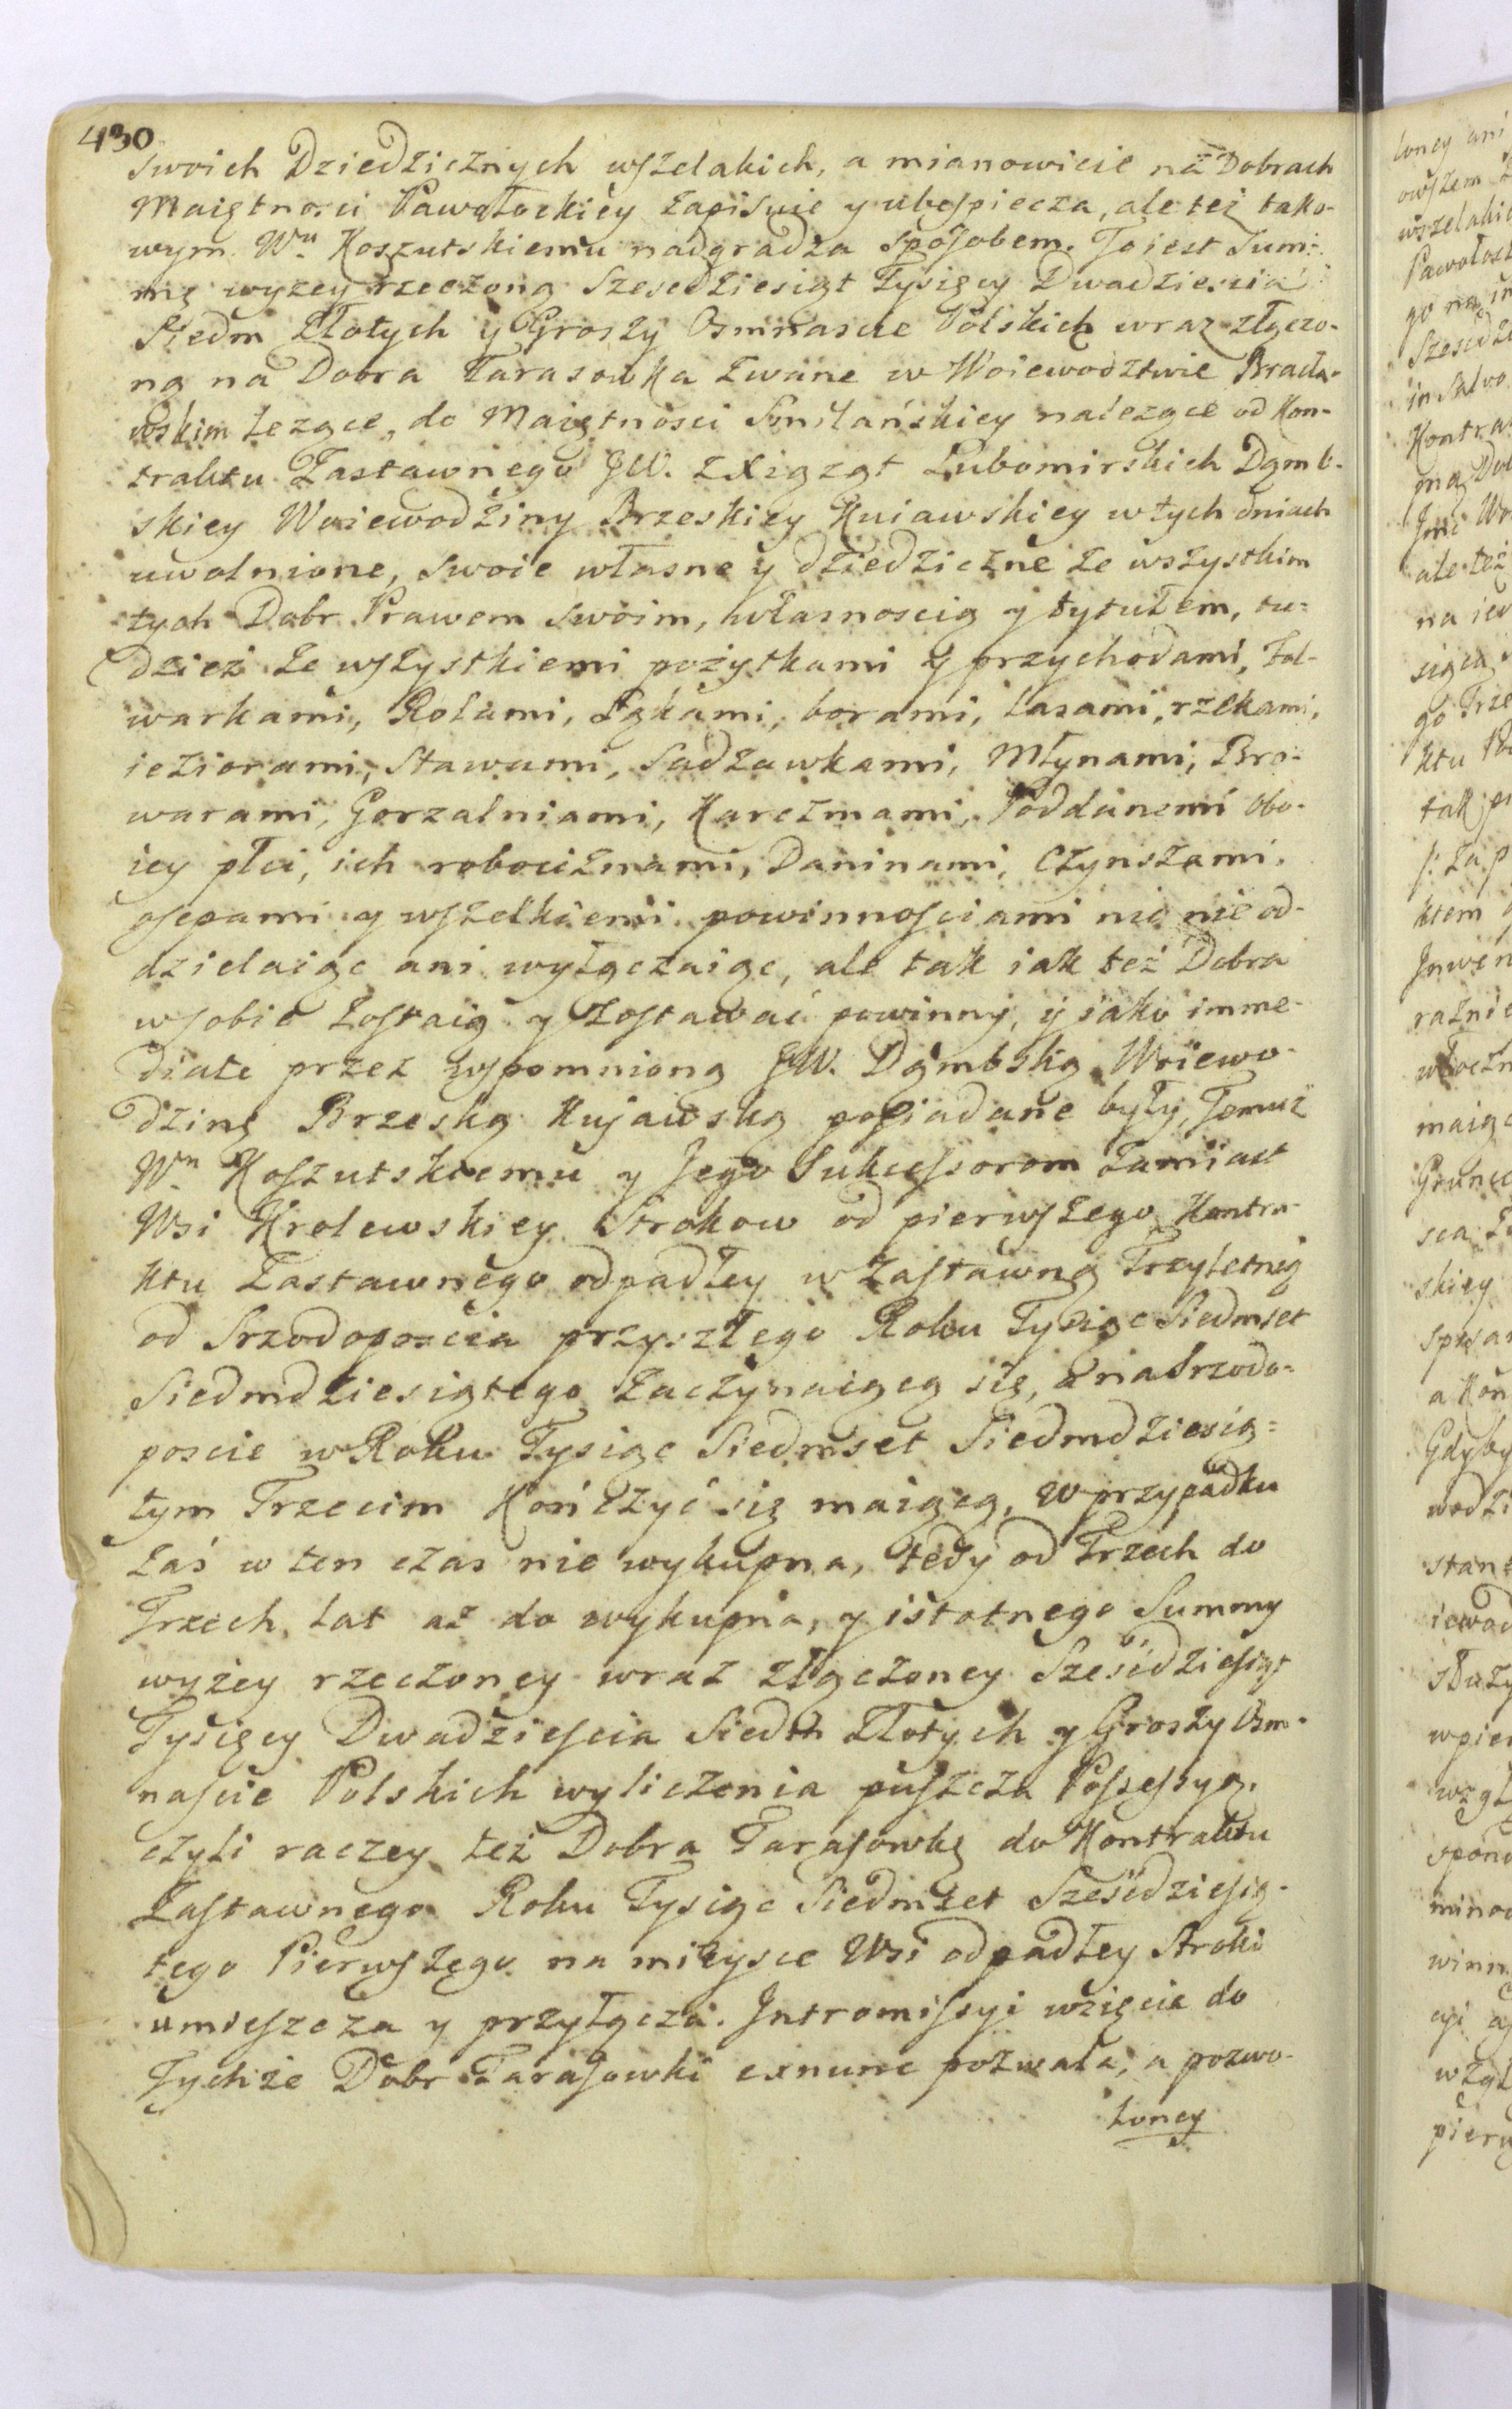 430
swoich Dziedzicznych wszelakich, a mianowicie na Dobrach
Maiętnosci Pawołockiey zapisuie y ubespiecza, ale też tako-
wym Wu Koszutskiemu nadgradza sposobem. To iest Sum-
mę wyzey rzeczoną Szescdziesiąt Tysięcy Dwadziescia
Siedm Złotych y Groszy Osmnascie Polskich wraz złączo-
ną na Dobra Tarasowka zwane w Woiewodztwie Bracła-
wskim leżące, do Maiętnosci Smilańskiey należące od Kon-
traktu Zastawnego JW. z Xiążąt Lubomirskich Dąmb-
skiey Woiewodziny Brzeskiey Kuiawskiey w tych dniach
uwolnione, swoie własne y dziedziczne ze wszystkim
tych Dobr Prawem swoim, własnoscią y tytułem, tu-
dzież ze wszystkiemi pożytkami y przychodami, Fol-
warkami, Rolami, Łąkami, borami, lasami, rzekami,
ieziorami, Stawami, Sadzawkami, Młynami, Bro-
warami, Gorzalniami, Karczmami, Poddanemi obo-
iey płci, ich robociznami, Daninami, Czynszami,
osepami y wszelkiemi powinnosciami nic nie od-
dzielaiąc ani wyłączaiąc, ale tak iak też Dobra
w sobie zostaią y zostawać powinny, y iako imme-
diate przez wspomnioną JW. Dąmbską Woiewo-
dzinę Brzeską Kujawską posiadane były, Temuż
Wn Koszutskiemu y Jego Sukcessorom zamiast
Wsi Krolewskiey Strokow od pierwszego Kontra-
ktu Zastawnego odpadłey w zastawną Trzyletnią
od Srzodoposcia przyszłego Roku Tysiąc Siedmset
Siedmdziesiątego zaczynaiącą się, a na Srzodo-
poscie w Roku Tysiąc Siedmset Siedmdziesią-
tym Trzecim Kończyć się maiącą, w przypadku
zaś w ten czas nie wykupna, tedy od Trzech do
Trzech lat aż do wykupna, y istotnego Summy
wyżey rzeczoney wraz złączoney Sześćdziesiąt
Tysięcy Dwadziescia Siedm Złotych y Groszy Osm-
nascie Polskich wyliczenia puszcza Possessyą.
czyli raczey też Dobra Tarasowkę do Kontraktu
Zastawnego Roku Tysiąc Siedmset Sześćdziesią-
tego Pierwszego na mieysce Wsi odpadłey Stroki
umieszcza y przyłącza. Intromissyi wzięcie do
Tychże Dobr Tarasowki exnunc pozwala, a pozwo-
loney